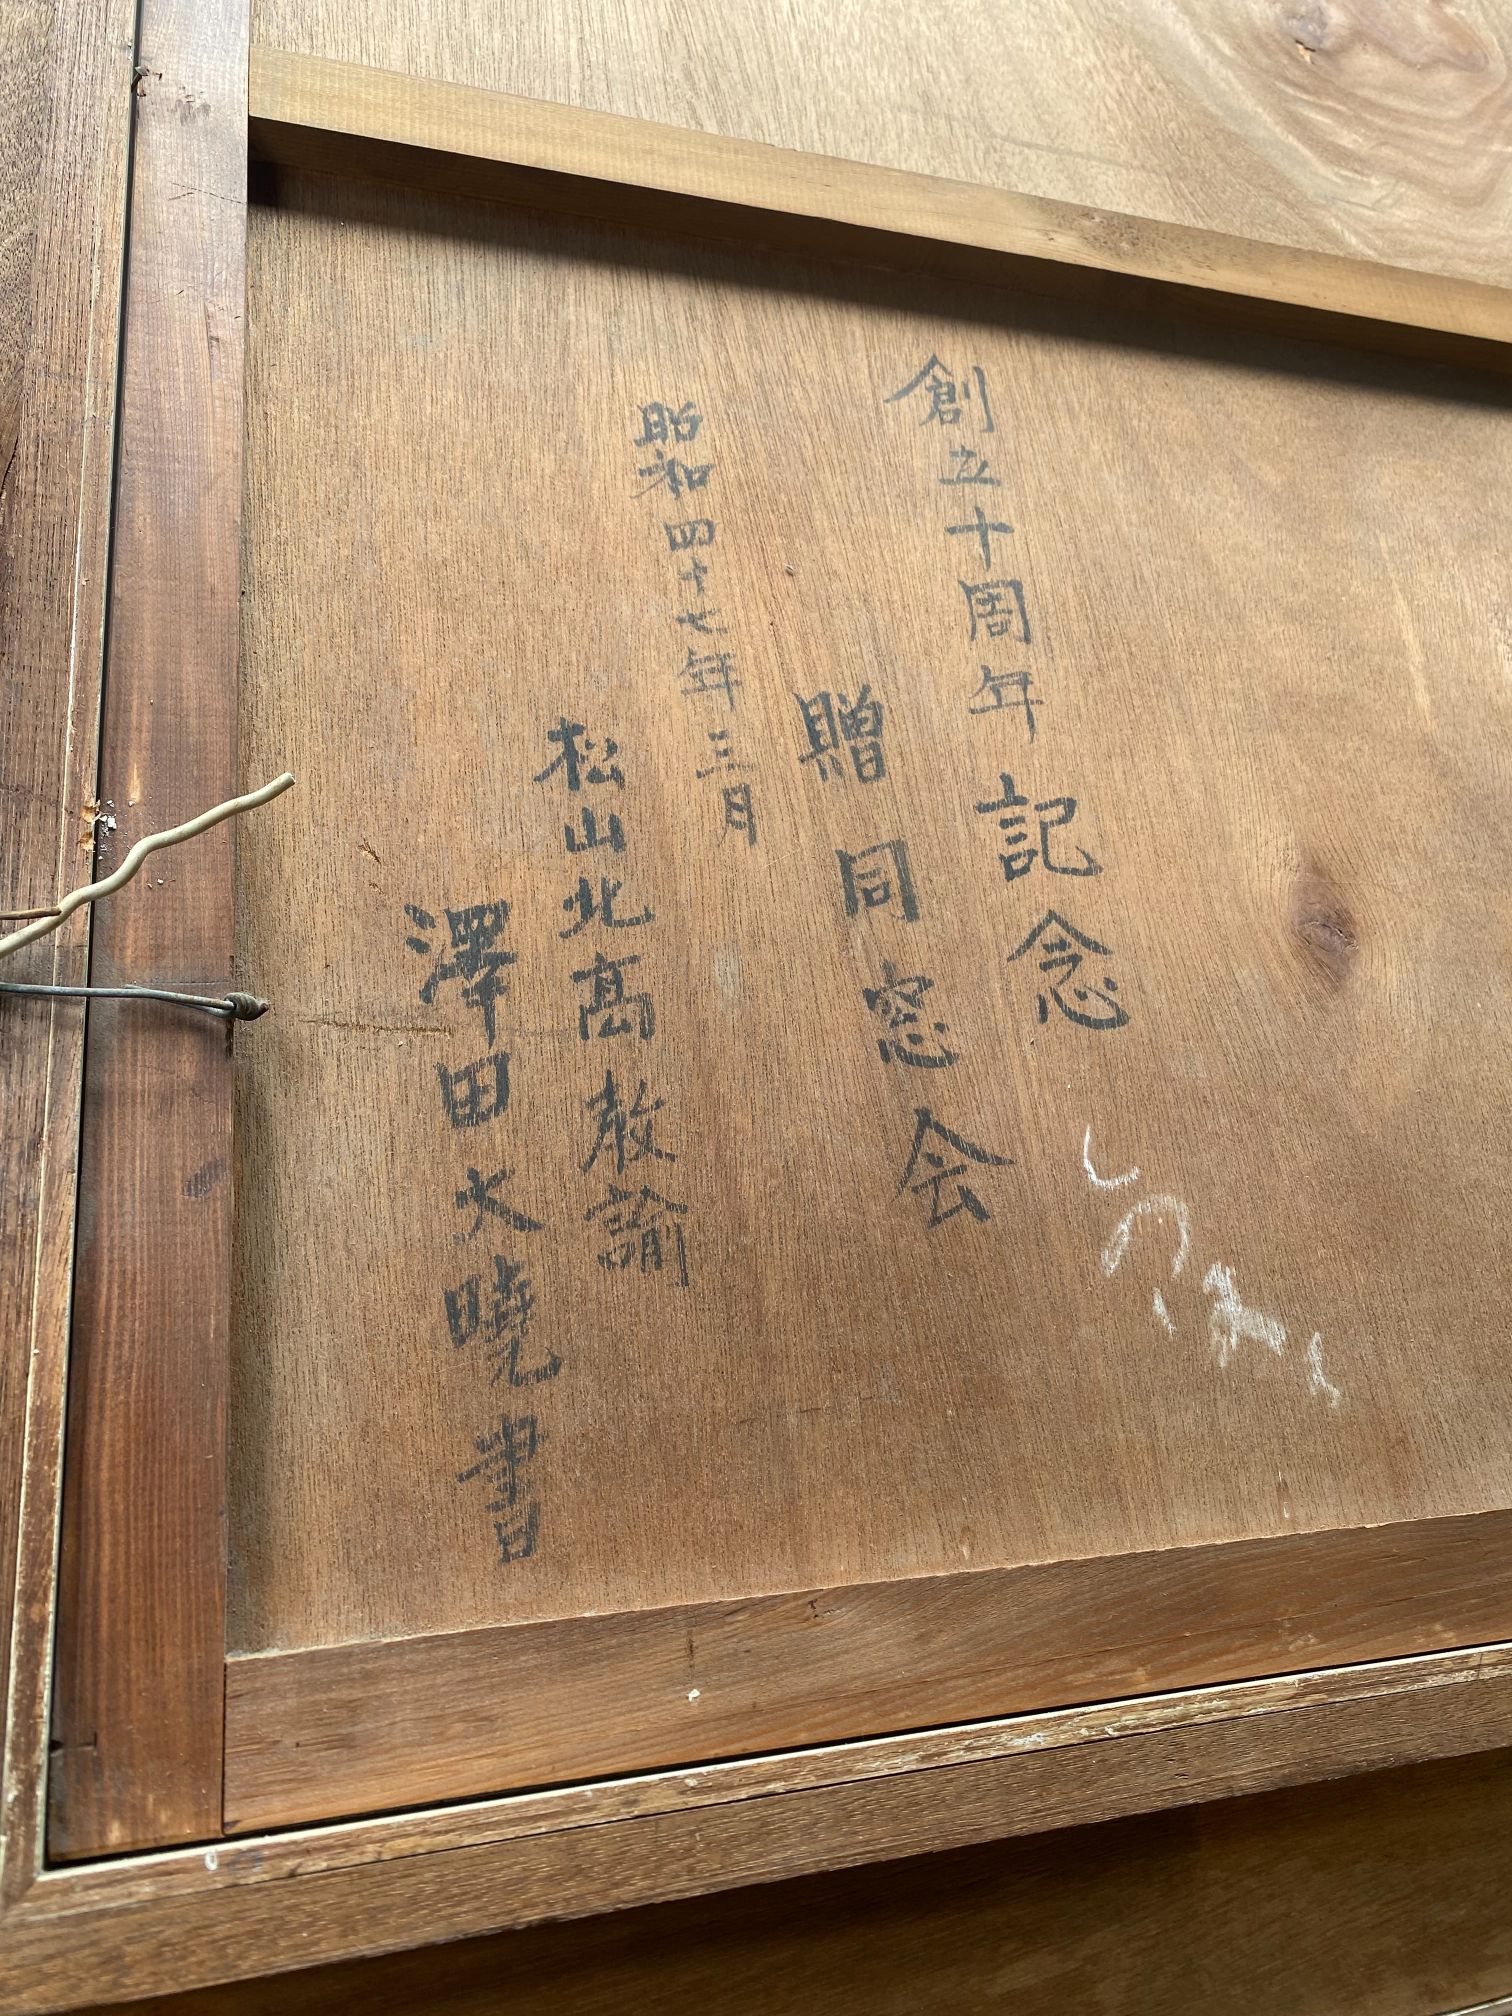 創立十周年記念
贈同窓会
昭和四十七年三月
松山北高教諭
澤田大曉書